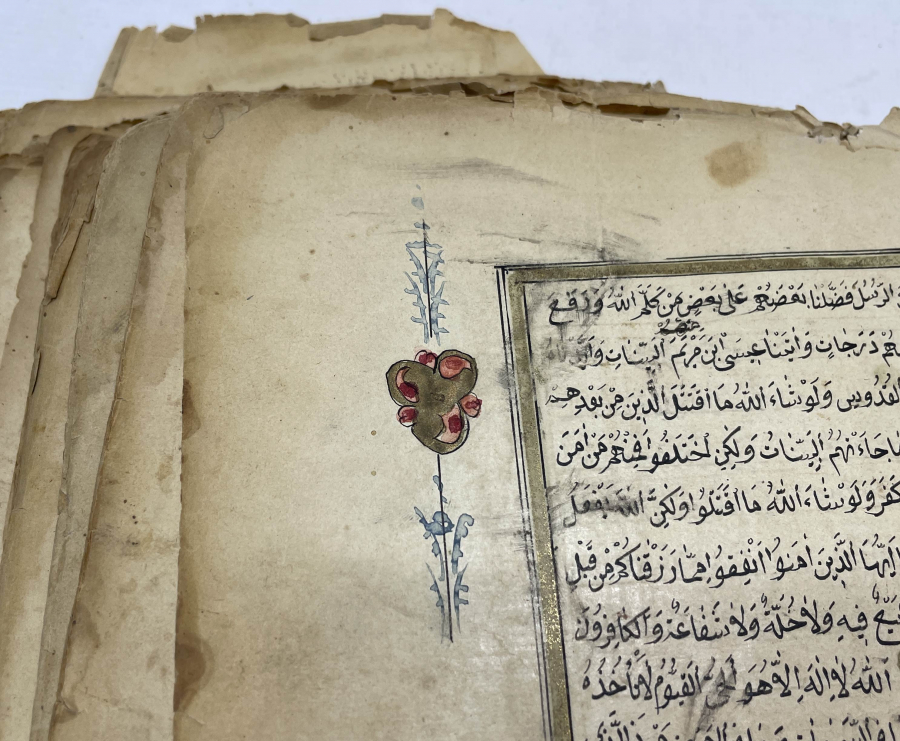 الرُّسُلُ فَضَّلْنَا بَعْضَهُمْ عَلٰى بَعْضٍ مِنْ كَلَّمَ اللّٰهُ وَرَفَعَ
مِنْهُمْ
دَرَجَاتٍ وَاٰتَيْنَا عِيسَى ابْنَ مَرْيَمَ الْبَيِّنَاتِ وَاَيَّدْنَاهُ
الْقُدُسِ وَلَوْ شَاءَ اللّٰهُ مَا اقْتَتَلَ الَّذِينَ مِنْ بَعْدِهِمْ
جَاءَتْهُمُ الْبَيِّنَاتُ وَلٰكِنِ اخْتَلَفُوا فَمِنْهُمْ مَنْ اٰمَنَ
كَفَرَ وَلَوْ شَاءَ اللّٰهُ مَا اقْتَتَلُوا وَلٰكِنَّ اللّٰهَ يَفْعَلُ
اَيُّهَا الَّذِينَ اٰمَنُوا اَنْفِقُوا مِمَّا رَزَقْنَاكُمْ مِنْ قَبْلِ
بَيْعٌ فِيهِ وَلَا خُلَّةٌ وَلَا شَفَاعَةٌ وَالْكَافِرُونَ
اَللّٰهُ لَا اِلٰهَ اِلَّا هُوَ الْحَيُّ الْقَيُّومُ لَا تَأْخُذُهُ